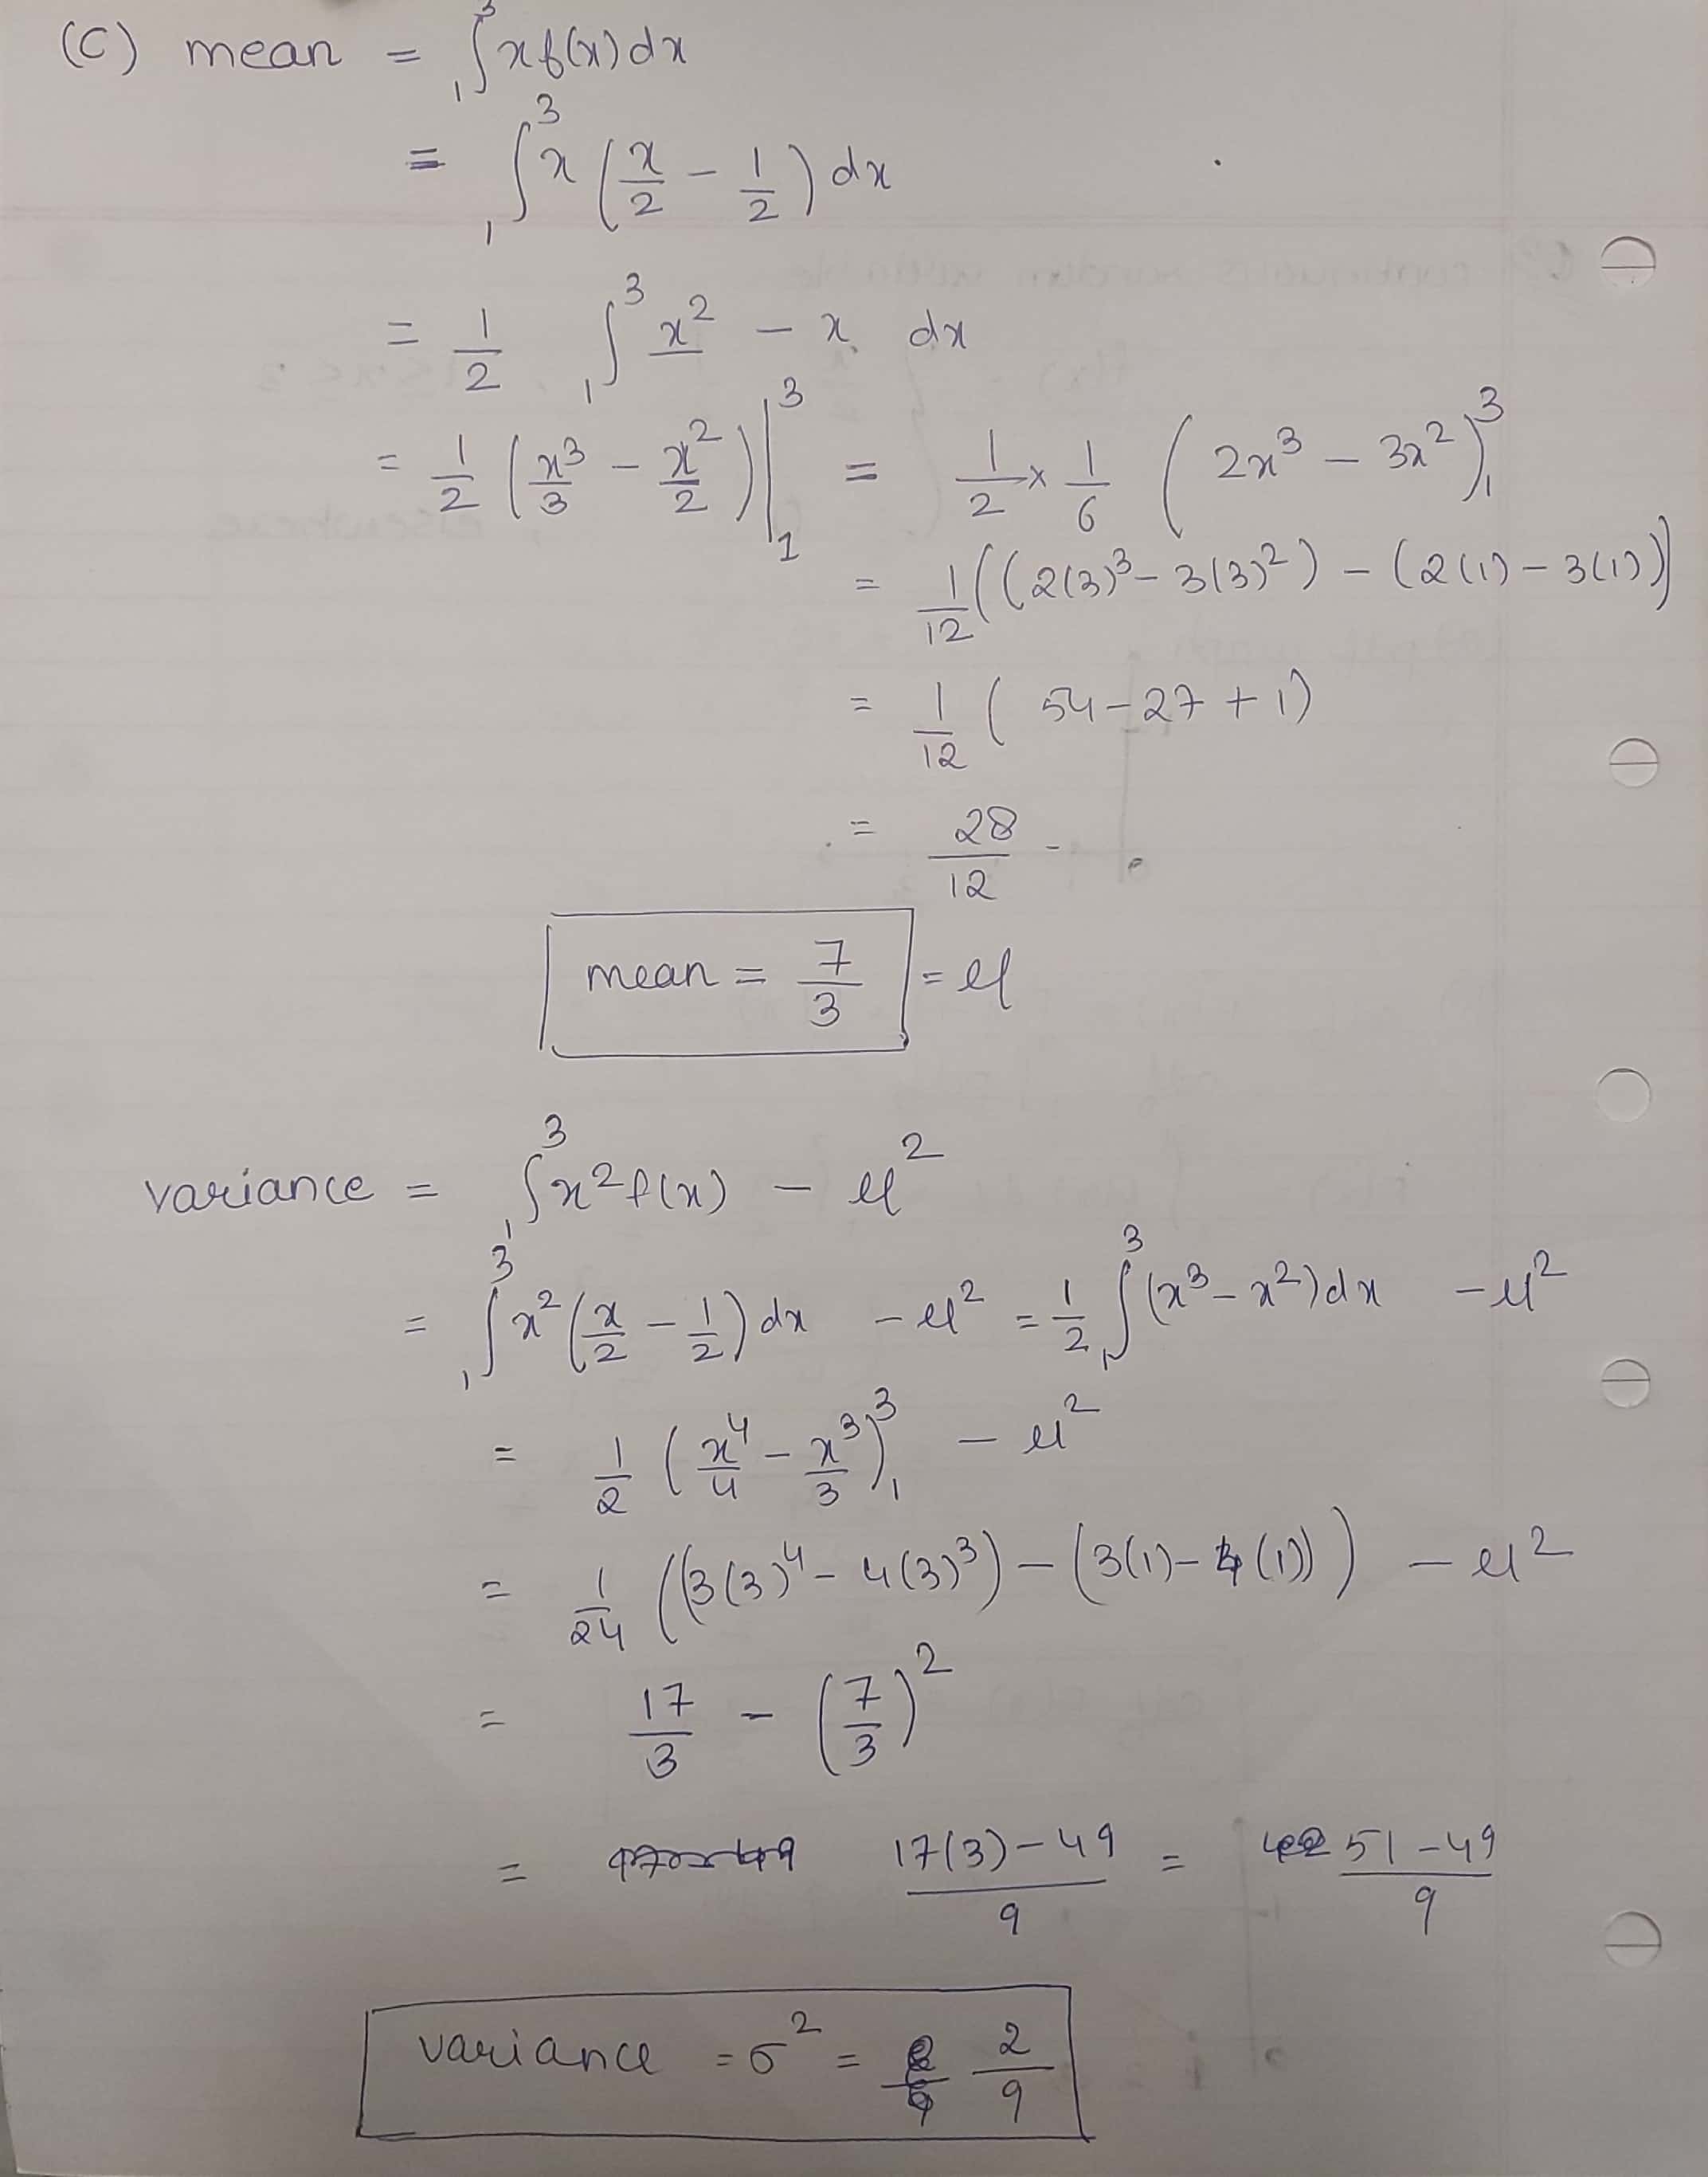 (C) mean = ∫₁³ x f(x) dx
= ∫₁³ x (x/2 - 1/2) dx
= 1/2 ∫₁³ x² - x dx
= 1/2 (x³/3 - x²/2)|₁³ = 1/2 × 1/6 (2x³ - 3x²)₁³
= 1/12 ((2(3)³ - 3(3)²) - (2(1) - 3(1))
= 1/12 (54 - 27 + 1)
= 28/12
mean = 7/3 = μ
variance = ∫₁³ x² f(x) - μ²
= ∫₁³ x² (x/2 - 1/2) dx - μ² = 1/2 ∫₁³ (x³ - x²) dx - μ²
= 1/2 (x⁴/4 - x³/3)₁³ - μ²
= 1/24 ((3(3)⁴ - 4(3)³) - (3(1) - 4(1))) - μ²
= 17/3 - (7/3)²
= 17(3) - 49/9 = 51 - 49/9
variance = σ² = 2/9